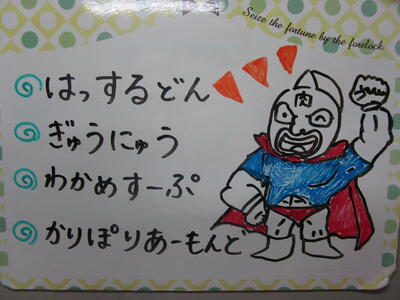 Seize the fortune by the forelock.
はっするどん
ぎゅうにゅう
わかめすーぷ
かりぽりあーもんど
肉